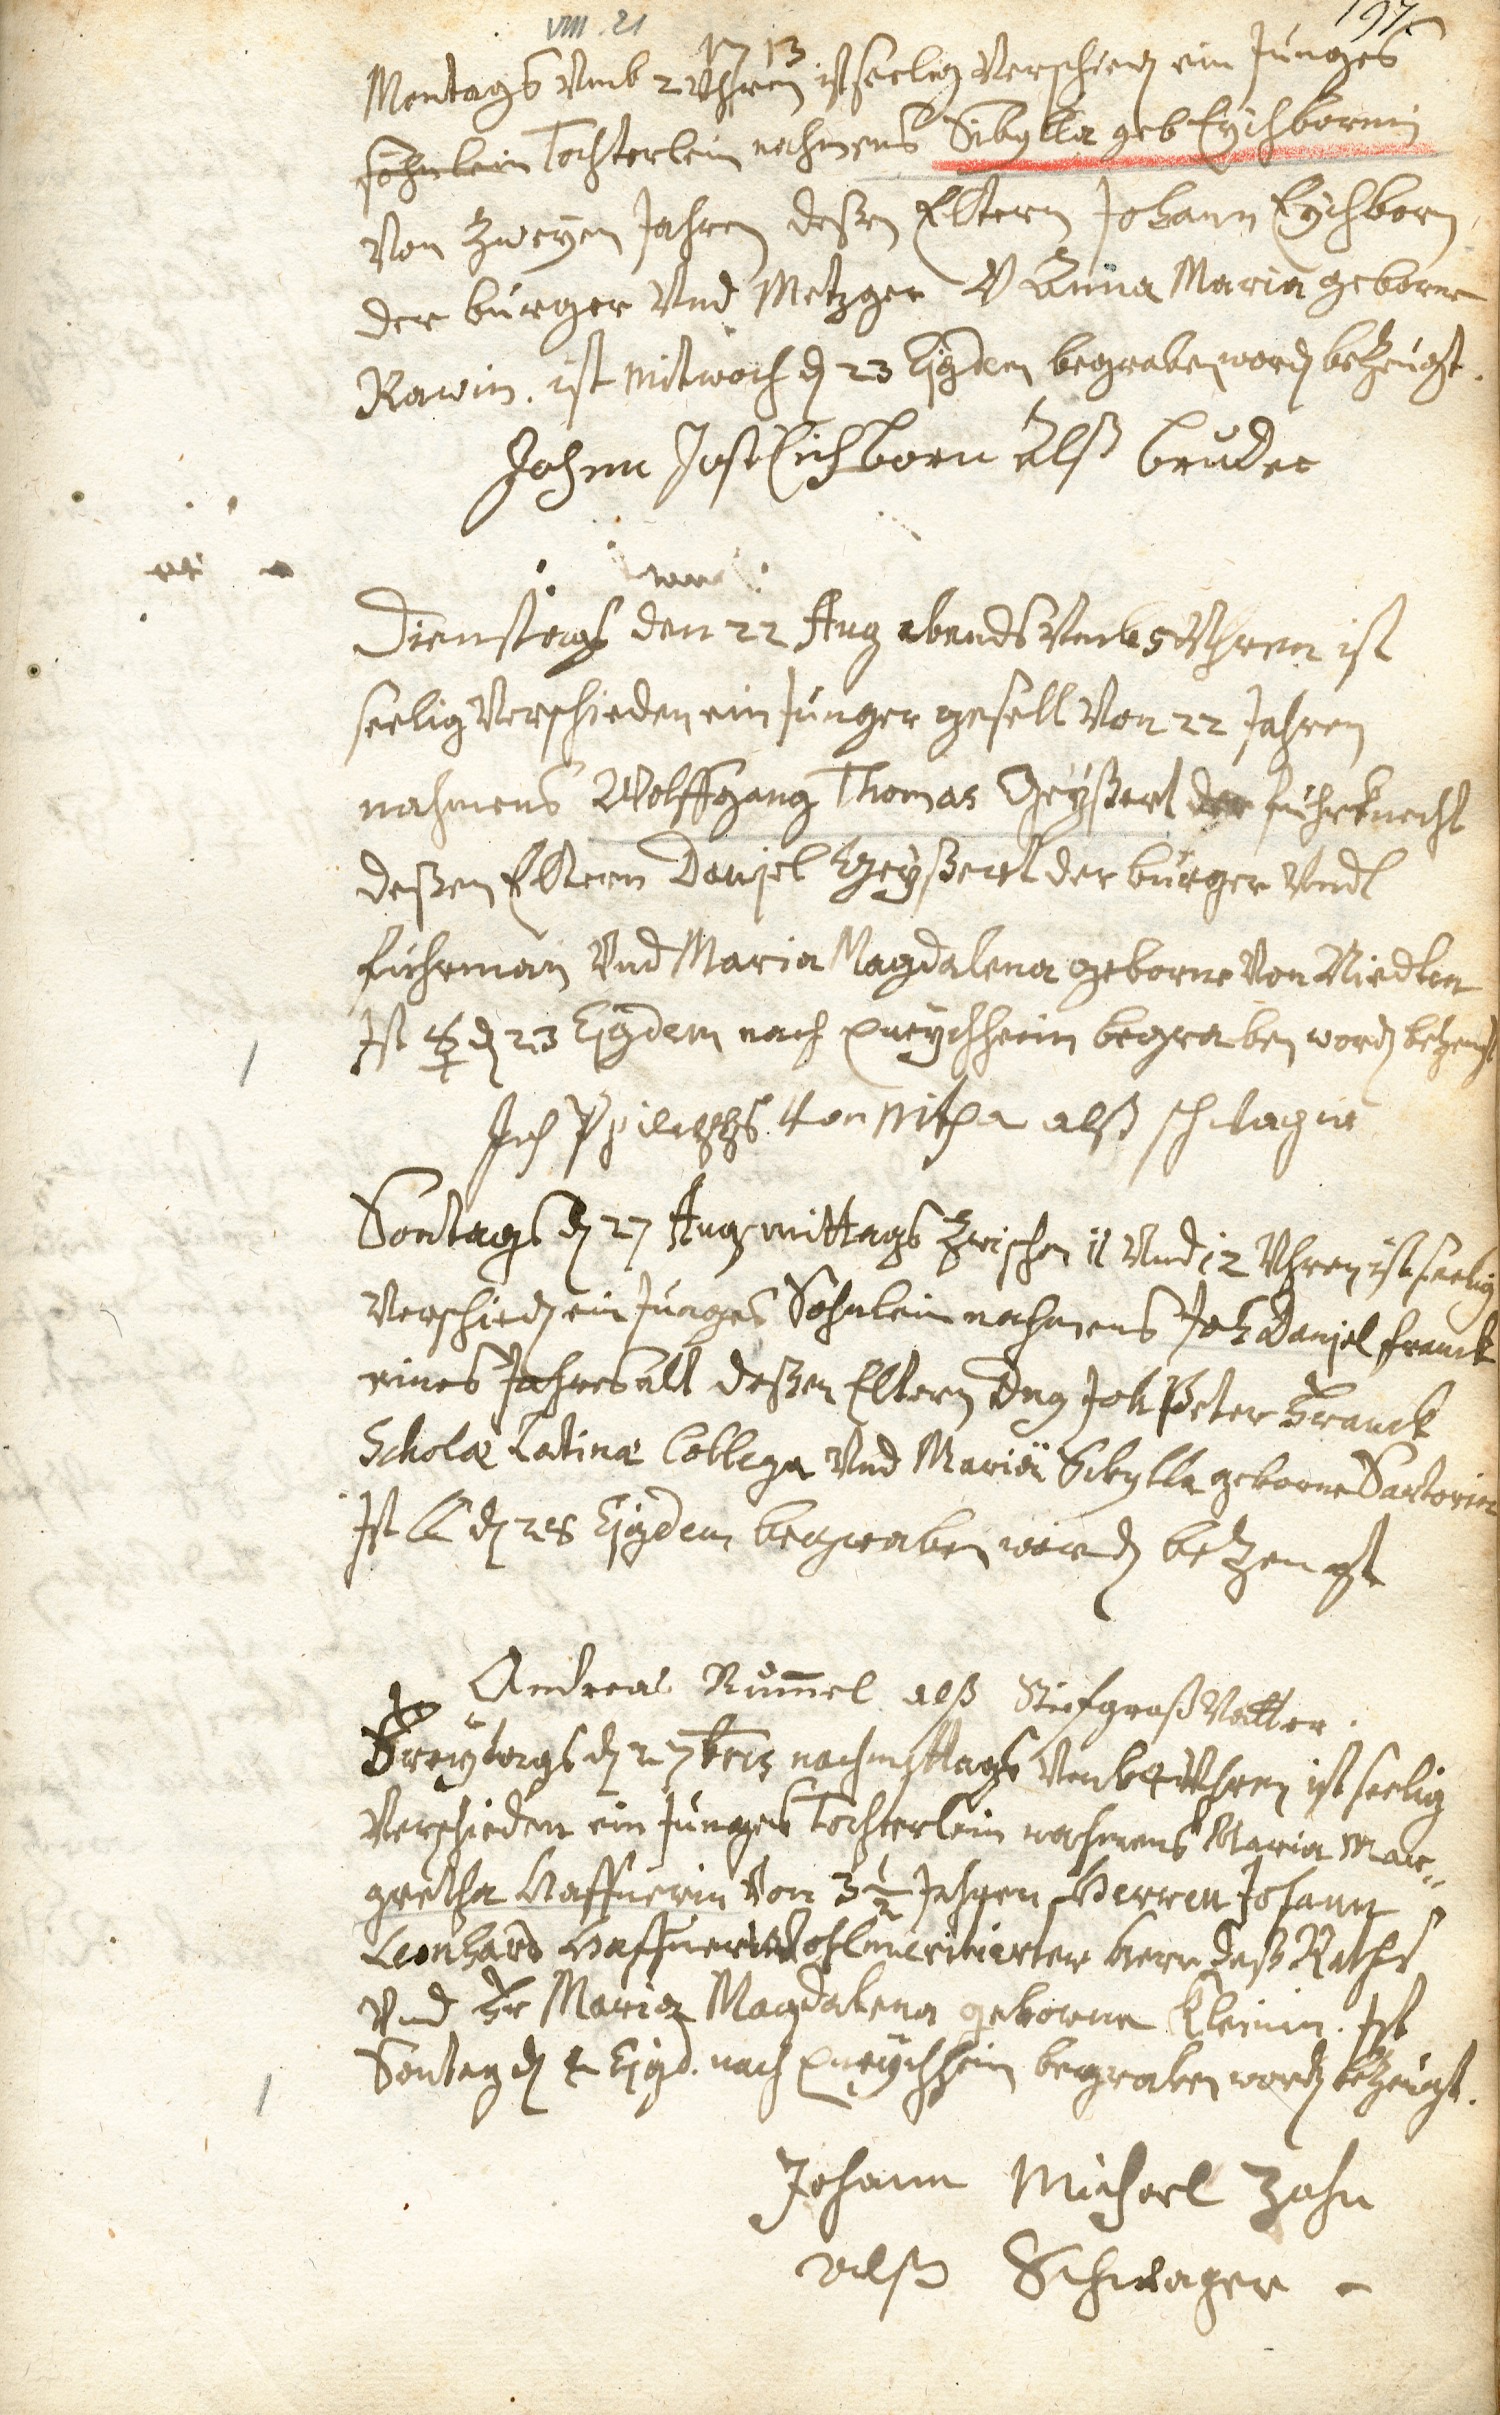 VIII. 21
197.
1713
Montags Vmb 2 Vhren ist seelig Verschied ein Junges
söhnlein Tochterlein nahmens Sibylla geb Eychbornin
Von Zweyen Jahren deßen Eltern Johann Eychborn
der burger Vnd Metzger V Anna Maria geborne
Rawin. ist Mitwoch d 23 Ejgdem begraben word bezeugt.
Johnn Jost Eichborn Alß bruder
Dienstags den 22 Aug abends Vmb 5 Vhren ist
seelig Verschieden ein Junger gesell Von 22 Jahren
nahmens Wolffgang Thomas Geyßert der fuhrknecht
deßen Eltern Danjel Geyßert der burger Vndt
fuhrman Vnd Maria Magdalena geborne Von Niedten
Ist ☿ d 23 Ejgdem nach Queychheim begraben word bezeugt
alß schwager
Sontags d 27 Aug mittags Zwischen 11 Vnd 12 Vhren ist seelig
Verschied ein Junges Sohnlein nahmens Joh Danjel franck
eines Jahres alt deßen Eltern Joh Peter Franck
Scholæ Latinæ Collega Vnd Maria Sibylla geborne Sartorin
Ist ☾ d 28 Ejgdem begraben word bezeugt
Andreas Rummel alß Stiefgroßvatter.
Freytags d 2 7bris nachmittags Vmb 4 Vhren ist seelig
Verschieden ein Junges Tochterlein nahmens Maria Mar=
gretha Haffnerin Von 3½ Jahren Herren Johann
Leonhard Haffner Wohlmeritirter Herr deß Raths
Vnd Fr Maria Magdalena geborne Kleinin. Ist
Sontag d 4 Ejgd. nach Queychheim begraben word bezeugt.
Johann Michael Zahn
alß Schwager